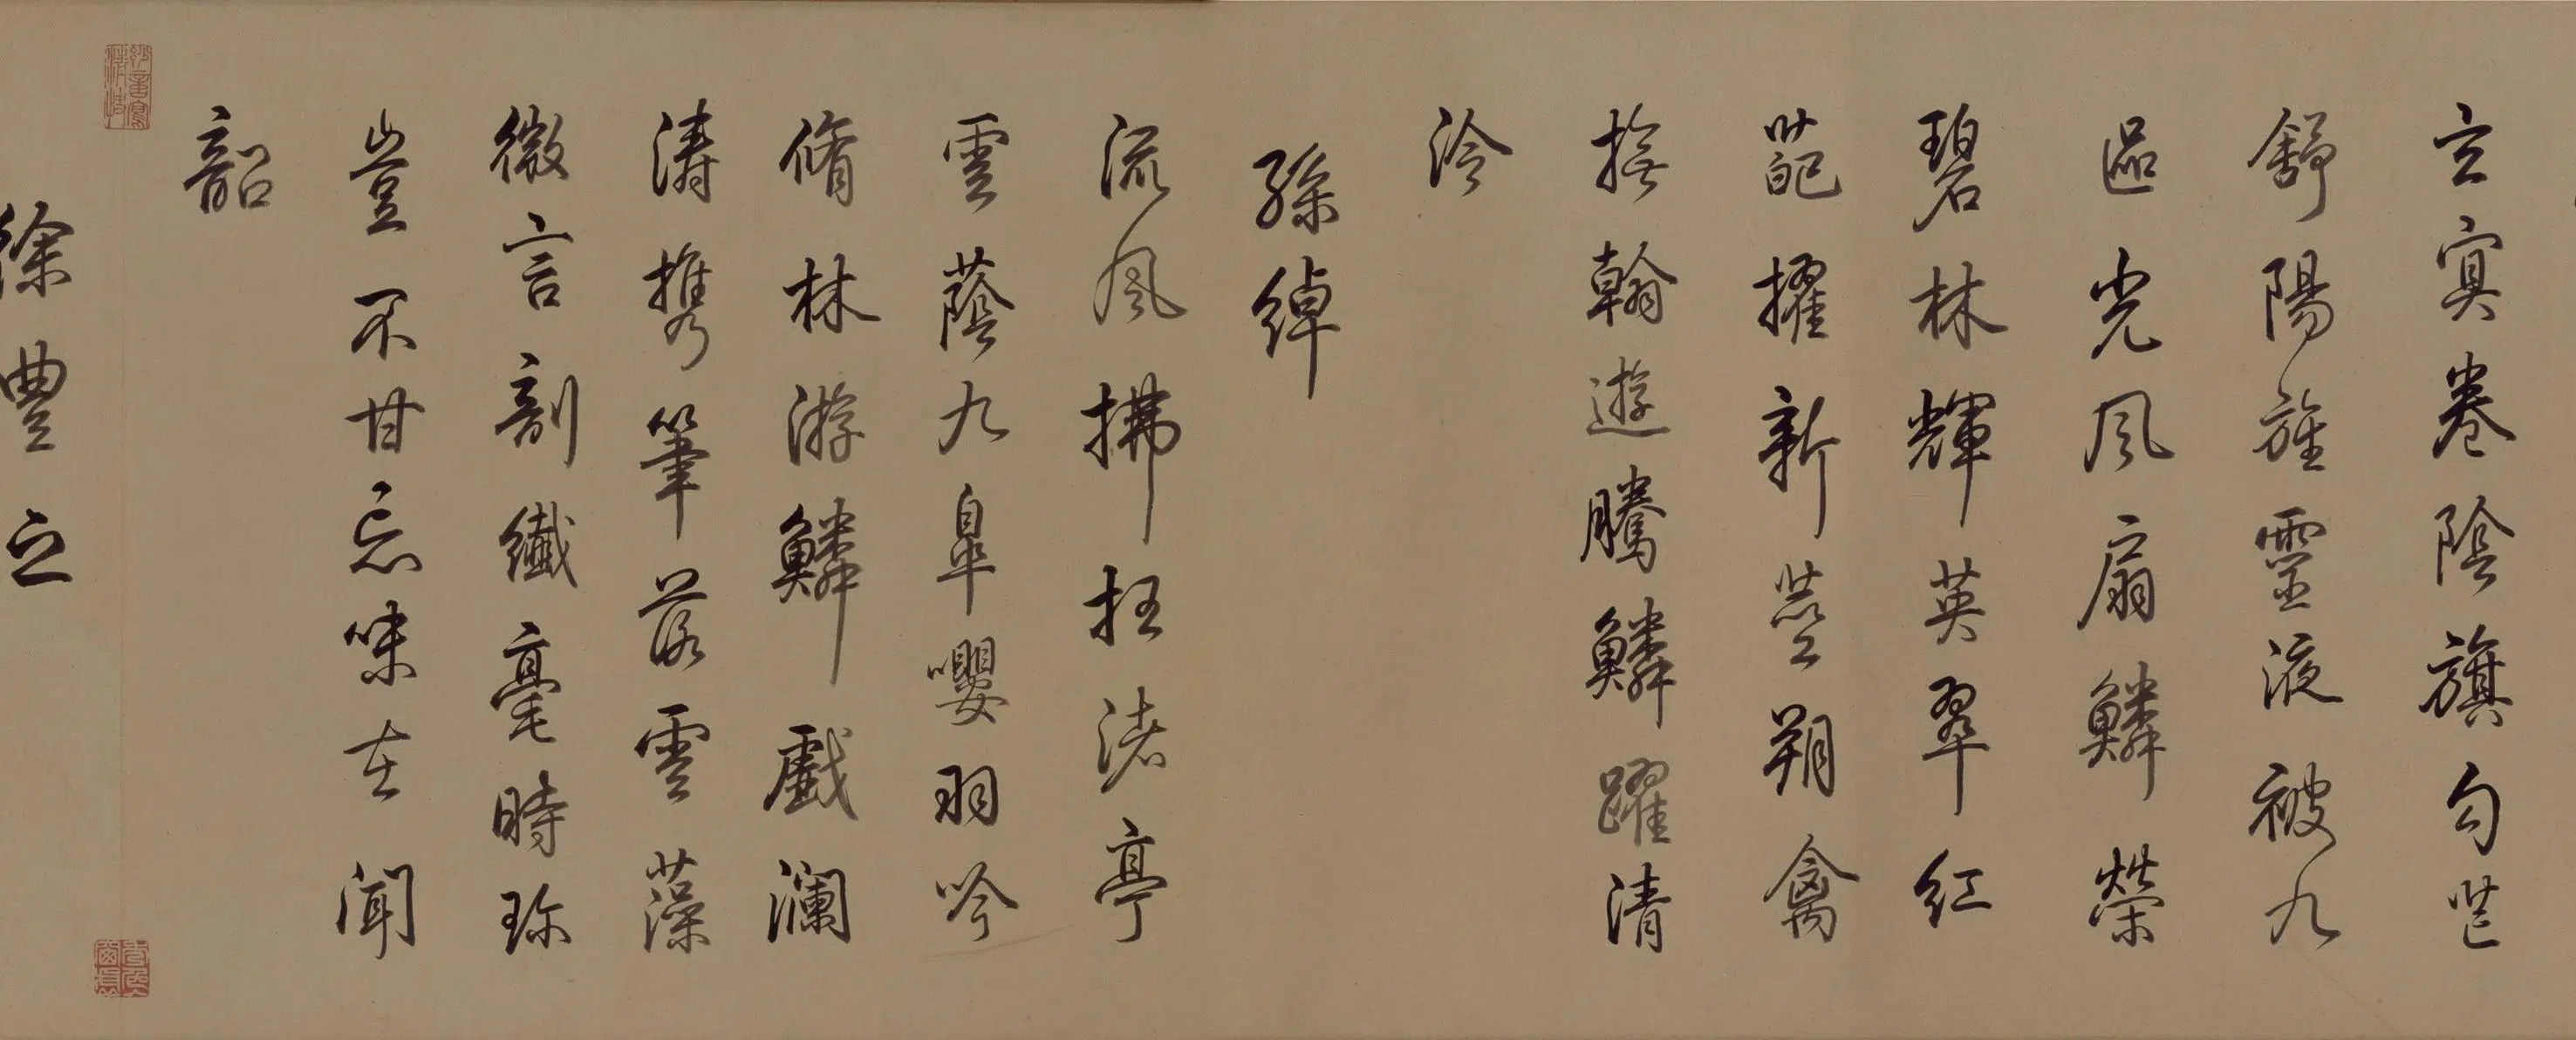 玄冥卷陰旗勾芒
舒陽旌靈液被九
區光風扇鱗榮
碧林輝英翠紅
葩擢新莖朔禽
撫翰遊騰鱗躍清
泠
孫綽
流風拂枉渚亭
雲蔭九皐嚶羽吟
脩林游鱗戲瀾
濤携筆落雲藻
微言剖纖毫時珍
豈不甘忘味在聞
韶
徐豊之